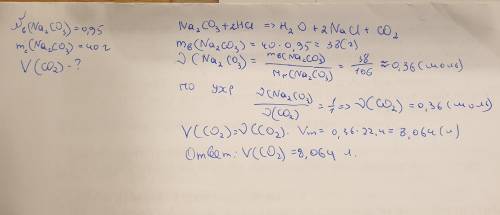 ωв(Na₂CO₃)=0,95
mс(Na₂CO₃)=40г
V(CO₂)-?
Na₂CO₃+2HCl => H₂O + 2NaCl + CO₂
mв(Na₂CO₃) = 40·0,95 = 38(г)
ν(Na₂CO₃) = mв(Na₂CO₃)/Mr(Na₂CO₃) = 38/106 ≈ 0,36(моль)
по ухр ν(Na₂CO₃)/ν(CO₂) = 1/1 => ν(CO₂) = 0,36(моль)
V(CO₂)=ν(CO₂)·Vm = 0,36·22,4 = 8,064(л)
Ответ: V(CO₂) = 8,064 л.